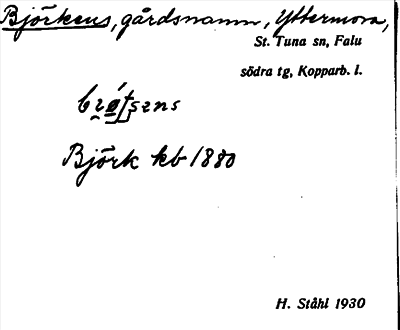 Björkens, gårdsnamn, Yttermora,
St. Tuna sn, Falu
södra tg, Kopparb. l.
Björk kb 1880
H. Ståhl 1930